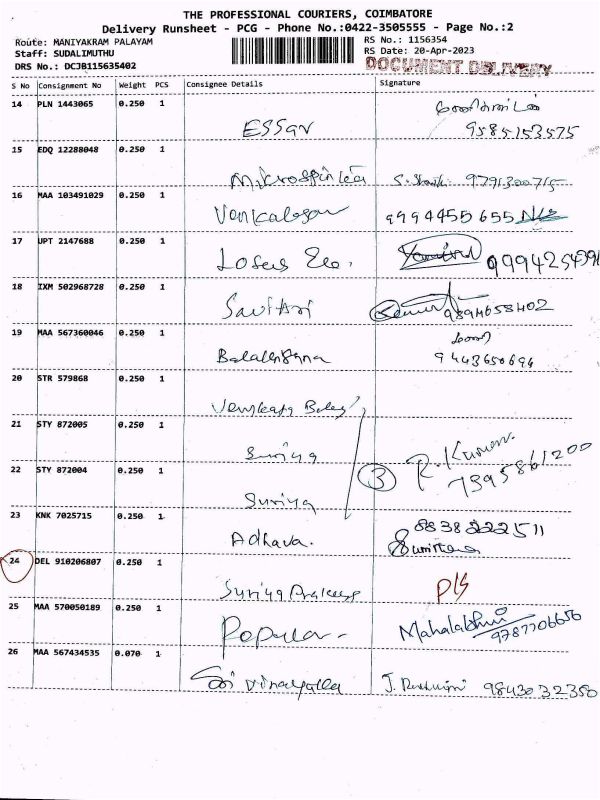 THE PROFESSIONAL COURIERS, COIMBATORE
Delivery Runsheet - PCG - Phone No.:0422-3505555 - Page No.:2
Route: MANIYAKRAM PALAYAM RS No.: 1156354
Staff: SUDALIMUTHU RS Date: 20-Apr-2023
DRS No.: DCJB115635402 DOCUMENT DELIVERY
S No Consignment No Weight PCS Consignee Details Signature
14 PLN 1443065 0.250 1
ESSAR 9585153575
15 EDQ 12288048 0.250 1
9791300715
16 MAA 103491029 0.250 1
9994455655
17 UPT 2147688 0.250 1
Lotus
18 IXM 502968728 0.250 1
Savitari 9894658402
19 MAA 567360046 0.250 1
9443650694
20 STR 579868 0.250 1
21 STY 872005 0.250 1
Suriya 3 R. Kumar
22 STY 872004 0.250 1 7395861200
Suriya
23 KNK 7025715 0.250 1
Adhava. 8838222511
24 DEL 910206807 0.250 1
Suriya P/S
25 MAA 570050189 0.250 1
Popular Mahalakshmi 9787706656
26 MAA 567434535 0.070 1
Sri Vinayaga 9843032350